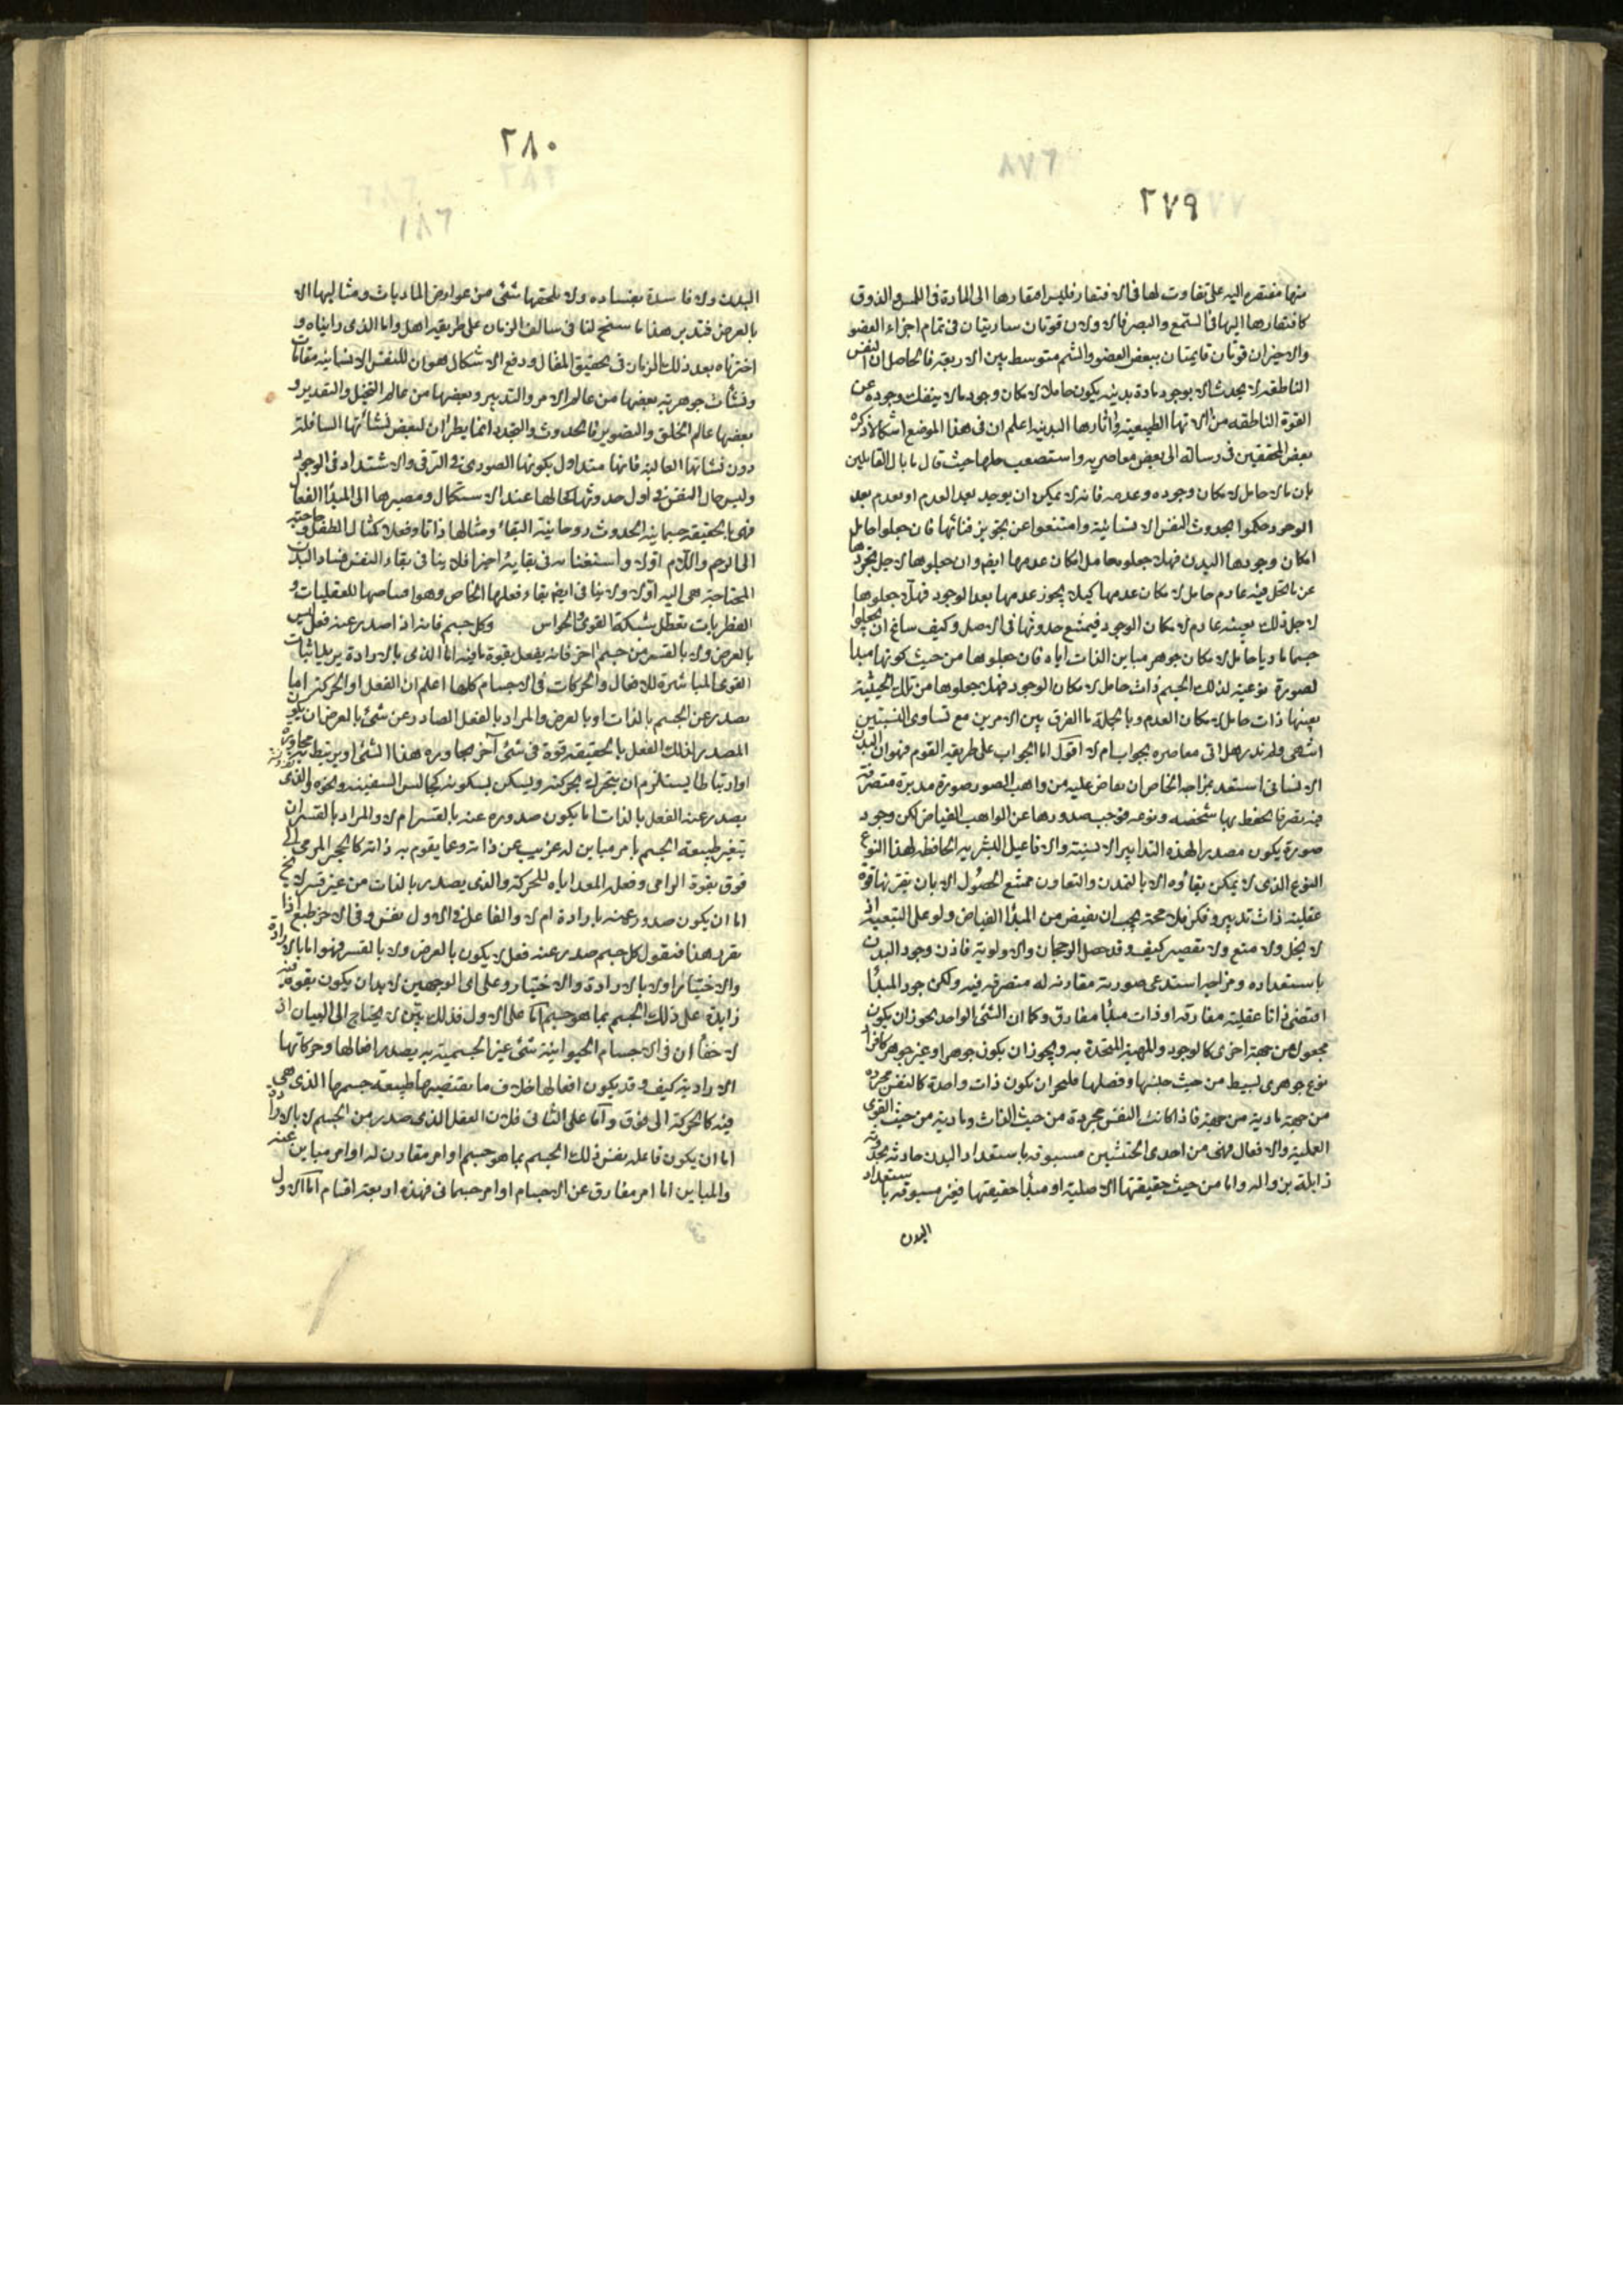 ٢٧٩
منها مفتقرة اليه على تفاوت لها فى الافتقار فليس افتقارها الى المادة فى اللمس والذوق
كافتقارها اليها فى السمع والبصر فالاولان قوتان ساريتان فى تمام اجزاء العضو
والاخيران قوتان قايمتان ببعض العضو والشم متوسط بين الاربعة فالحاصل ان النفس
الناطقة لا يحدث الا بوجود مادة بدنية يكون حاملا لامكان وجود ما لا ينفك وجوده عن
القوة الناطقه من الاتها الطبيعية واثارها البدنيه اعلم ان فى هذا الموضع اشكالا ذكره
بعض المحققين فى رسالة الى بعض معاصريه واستصعب حلها حيث قال ما بال القايلين
بان ما لا حامل لامكان وجوده وعدمه فانه لا يمكن ان يوجد بعد العدم او يعدم بعد
الوجود حكموا بحدوث النفس الانسانية وامتنعوا عن تجويز فنائها فان جعلوا حامل
امكان وجودها البدن فهلا جعلوه حامل امكان عدمها ايضا وان جعلوها لاجل تجردها
عن ما تحل فيه عادم حامل لامكان عدمها كيلا يجوز عدمها بعد الوجود فهلا جعلوها
لاجل ذلك بعينه عادم لامكان الوجود فيمتنع حدوثها فى الاصل وكيف ساغ ان يجعلوا
جسما ماديا حامل لامكان جوهر مباين الذات اياه فان جعلوها من حيث كونها مبدا
لصورة نوعية لذلك الجسم ذات حامل لامكان الوجود فهلا جعلوها من تلك الحيثية
بعينها ذات حامل لامكان العدم وبالجملة ما الفرق بين الامرين مع تساوى النسبتين
انتهى ولم ندر هل اتى معاصره بجواب ام لا اقول اما الجواب على طريقه القوم فهو ان البدن
الانسانى استعد بمزاجه الخاص ان يفاض عليه من واهب الصور صورة مدبرة متصرفة
فيه تصرفا يحفظ بها شخصه ونوعه فوجب صدورها عن الواهب الفياض لكن وجود
صورة يكون مصدرا لهذه التدابير الانسية والافاعيل البشريه الحافظه لهذا النوع
النوع الذى لا يمكن بقاؤه الا بالتمدن والتعاون ممتنع الحصول الا بان يقترنها قوة
عقلية ذات تدبير وفكر فلا محة يجب ان يفيض من المبدأ الفياض ولو على التبعية اذ
لا بخل ولا منع ولا تقصير كيف وقد حصل الرجحان والاولوية فاذن وجود البدن
باستعداده ومزاجه استدعى صورته مقارنه له متصرفه فيه ولكن جود المبدأ
اقتضى ذاتا عقلية مفارقه او ذات مبدأ مفارق وكما ان الشئ الواحد يجوز ان يكون
مجعولا من جهة اخرى كالوجود والمهية المتحدة به ويجوز ان يكون جوهرا وغير جوهر كافراد
نوع جوهرى بسيط من حيث جنسها وفصلها فليجز ان يكون ذات واحدة كالنفس مجرده
من جهة مادية من جهة فاذا كانت النفس مجردة من حيث الذات ومادية من حيث القوى
العملية والافعال فهى من احدى الحيثيتين مسبوقه باستعداد البدن حادثه بحدوثه
زايلة بزواله واما من حيث حقيقتها الاصلية او مبدأ حقيقتها فغير مسبوقه باستعداد
البدن
٢٨٠
البدن ولا فاسدة بفساده ولا يلحقها شئ من عوارض الماديات ومثالبها الا
بالعرض فتدبر هذا ما سنح لنا فى سالف الزمان على طريقة اهل واما الذى رايناه و
اخترناه بعد ذلك الزمان فى تحقيق المقال ودفع الاشكال هو ان للنفس الانسانيه مقامات
ونشأت جوهرية بعضها من عالم الامر والتدبير وبعضها من عالم التخيل والتقدير و
بعضها عالم الخلق والتصوير فالحدوث والتجدد انما يطرأن لبعض نشأتها السافلة
دون نشأتها العالية فانها متداول يكونها الصورى فى الترقى والاشتداد فى الوجود
وليس حال النفس فى اول حدوثها كحالها عند الاستكمال ومصيرها الى المبدأ الفعال
فهى بالحقيقة جسمانية الحدوث روحانية البقاء ومثالها ذاتا وفعلا كمثال الطفل وحاجته
الى الرحم والآلام اولا واستغناءه فى بقاءية اخيرا فلا ينافى بقاء النفس فساد البدن
المحتاجة هى اليه اولا ولا ينافى ايضا بقاء فعلها الخاص وهو اقتناصها للعقليات و
النظريات تعطل شبكة القوى والحواس وكل جسم فانه اذا صدر عنه فعل ليس
بالعرض ولا بالقسر من جسم اخر فانه يفعل بقوة ما فيه اما الذى بالارادة يريد اثبات
القوى المباشرة للافعال والحركات فى الاجسام كلها اعلم ان الفعل او الحركة اما
يصدر عن الجسم بالذات او بالعرض والمراد بالفعل الصادر عن شئ بالعرض ان يكون
المصدر لذلك الفعل بالحقيقة قوة فى شئ آخر مجاوره هذا الشئ او يرتبط به مجاورة
او ارتباطا يستلزم ان يتحرك بحركته ويسكن بسكونه كجالس السفينه ونحوه والذى
يصدر عنه الفعل بالذات اما يكون صدوره عنه بالقسر ام لا والمراد بالقسر ان
يتغير طبيعة الجسم بامر مباين له غريب عن ذاته وعما يقوم به ذاته كالحجر المرمى الى
فوق بقوة الرامى وفعله المعد اياه للحركة والذى يصدر بالذات من غير قسر لا يخ
اما ان يكون صدوره عنه بارادة ام لا والفاعل فى الاول نفس وفى الاخر طبع اذا
تقرر هذا فنقول كل جسم صدر عنه فعل لا يكون بالعرض ولا بالقسر فهو اما بالارادة
والاختيار او لا بالارادة والاختيار وعلى اى الوجهين لا بد ان يكون بقوة فيه
زايدة على ذلك الجسم بما هو جسم اما على الاول فذلك بين لا يحتاج الى البيان اذ
لا خفأ ان فى الاجسام الحيوانية شئ غير الجسمية به يصدر افعالها وحركاتها
الارادية كيف وقد يكون افعالها خلاف ما تقتضيها طبيعة جسمها الذى هى
فيه كالحركة الى فوق واما على الثانى فلان الفعل الذى صدر من الجسم لا بالارادة
اما ان يكون فاعله نفس ذلك الجسم بما هو جسم او امر مقارن له او امر مباين عنه
والمباين اما امر مفارق عن الاجسام او امر جسمانى فهذه اربعة اقسام اما الاول